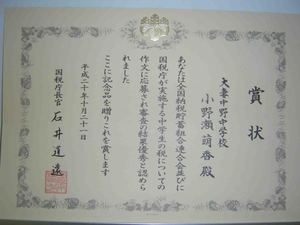 賞状
大妻中野中学校
小野瀬萌香殿
あなたは全国納税貯蓄組合連合会並びに
国税庁が実施する中学生の税についての
作文に応募され審査の結果優秀と認めら
れました
ここに記念品を贈りこれを賞します
平成二十年十月二十一日
国税庁長官 石井道遠